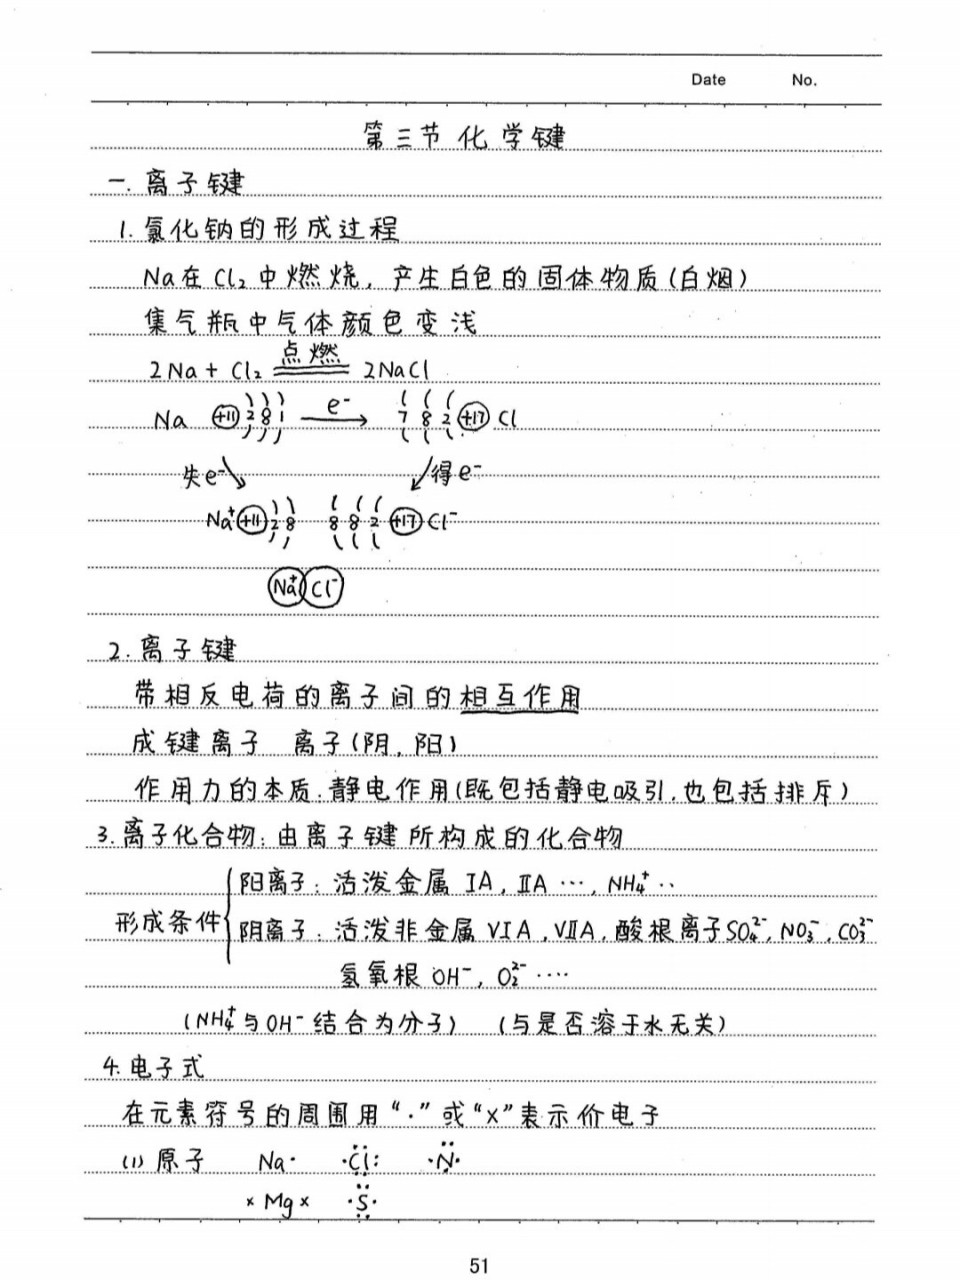 Date No.
第三节 化学键
一. 离子键
1. 氯化钠的形成过程
Na在Cl₂中燃烧, 产生白色的固体物质(白烟)
集气瓶中气体颜色变浅
点燃
2Na + Cl₂ ══ 2NaCl
Na +11 2 8 1 e⁻ → 7 8 2 +17 Cl
失e⁻ 得e⁻
Na⁺ +11 2 8 8 8 2 +17 Cl⁻
Na⁺ Cl⁻
2. 离子键
带相反电荷的离子间的相互作用
成键离子 离子(阴, 阳)
作用力的本质: 静电作用(既包括静电吸引, 也包括排斥)
3. 离子化合物: 由离子键所构成的化合物
形成条件
阳离子: 活泼金属 IA, IIA …, NH₄⁺ ··
阴离子: 活泼非金属 VIA, VIIA, 酸根离子SO₄²⁻, NO₃⁻, CO₃²⁻
氢氧根 OH⁻, O₂²⁻ ····
(NH₄⁺与OH⁻结合为分子) (与是否溶于水无关)
4. 电子式
在元素符号的周围用“·”或“×”表示价电子
(1) 原子 Na· ·Cl: ·N·
× Mg × ·S·
51